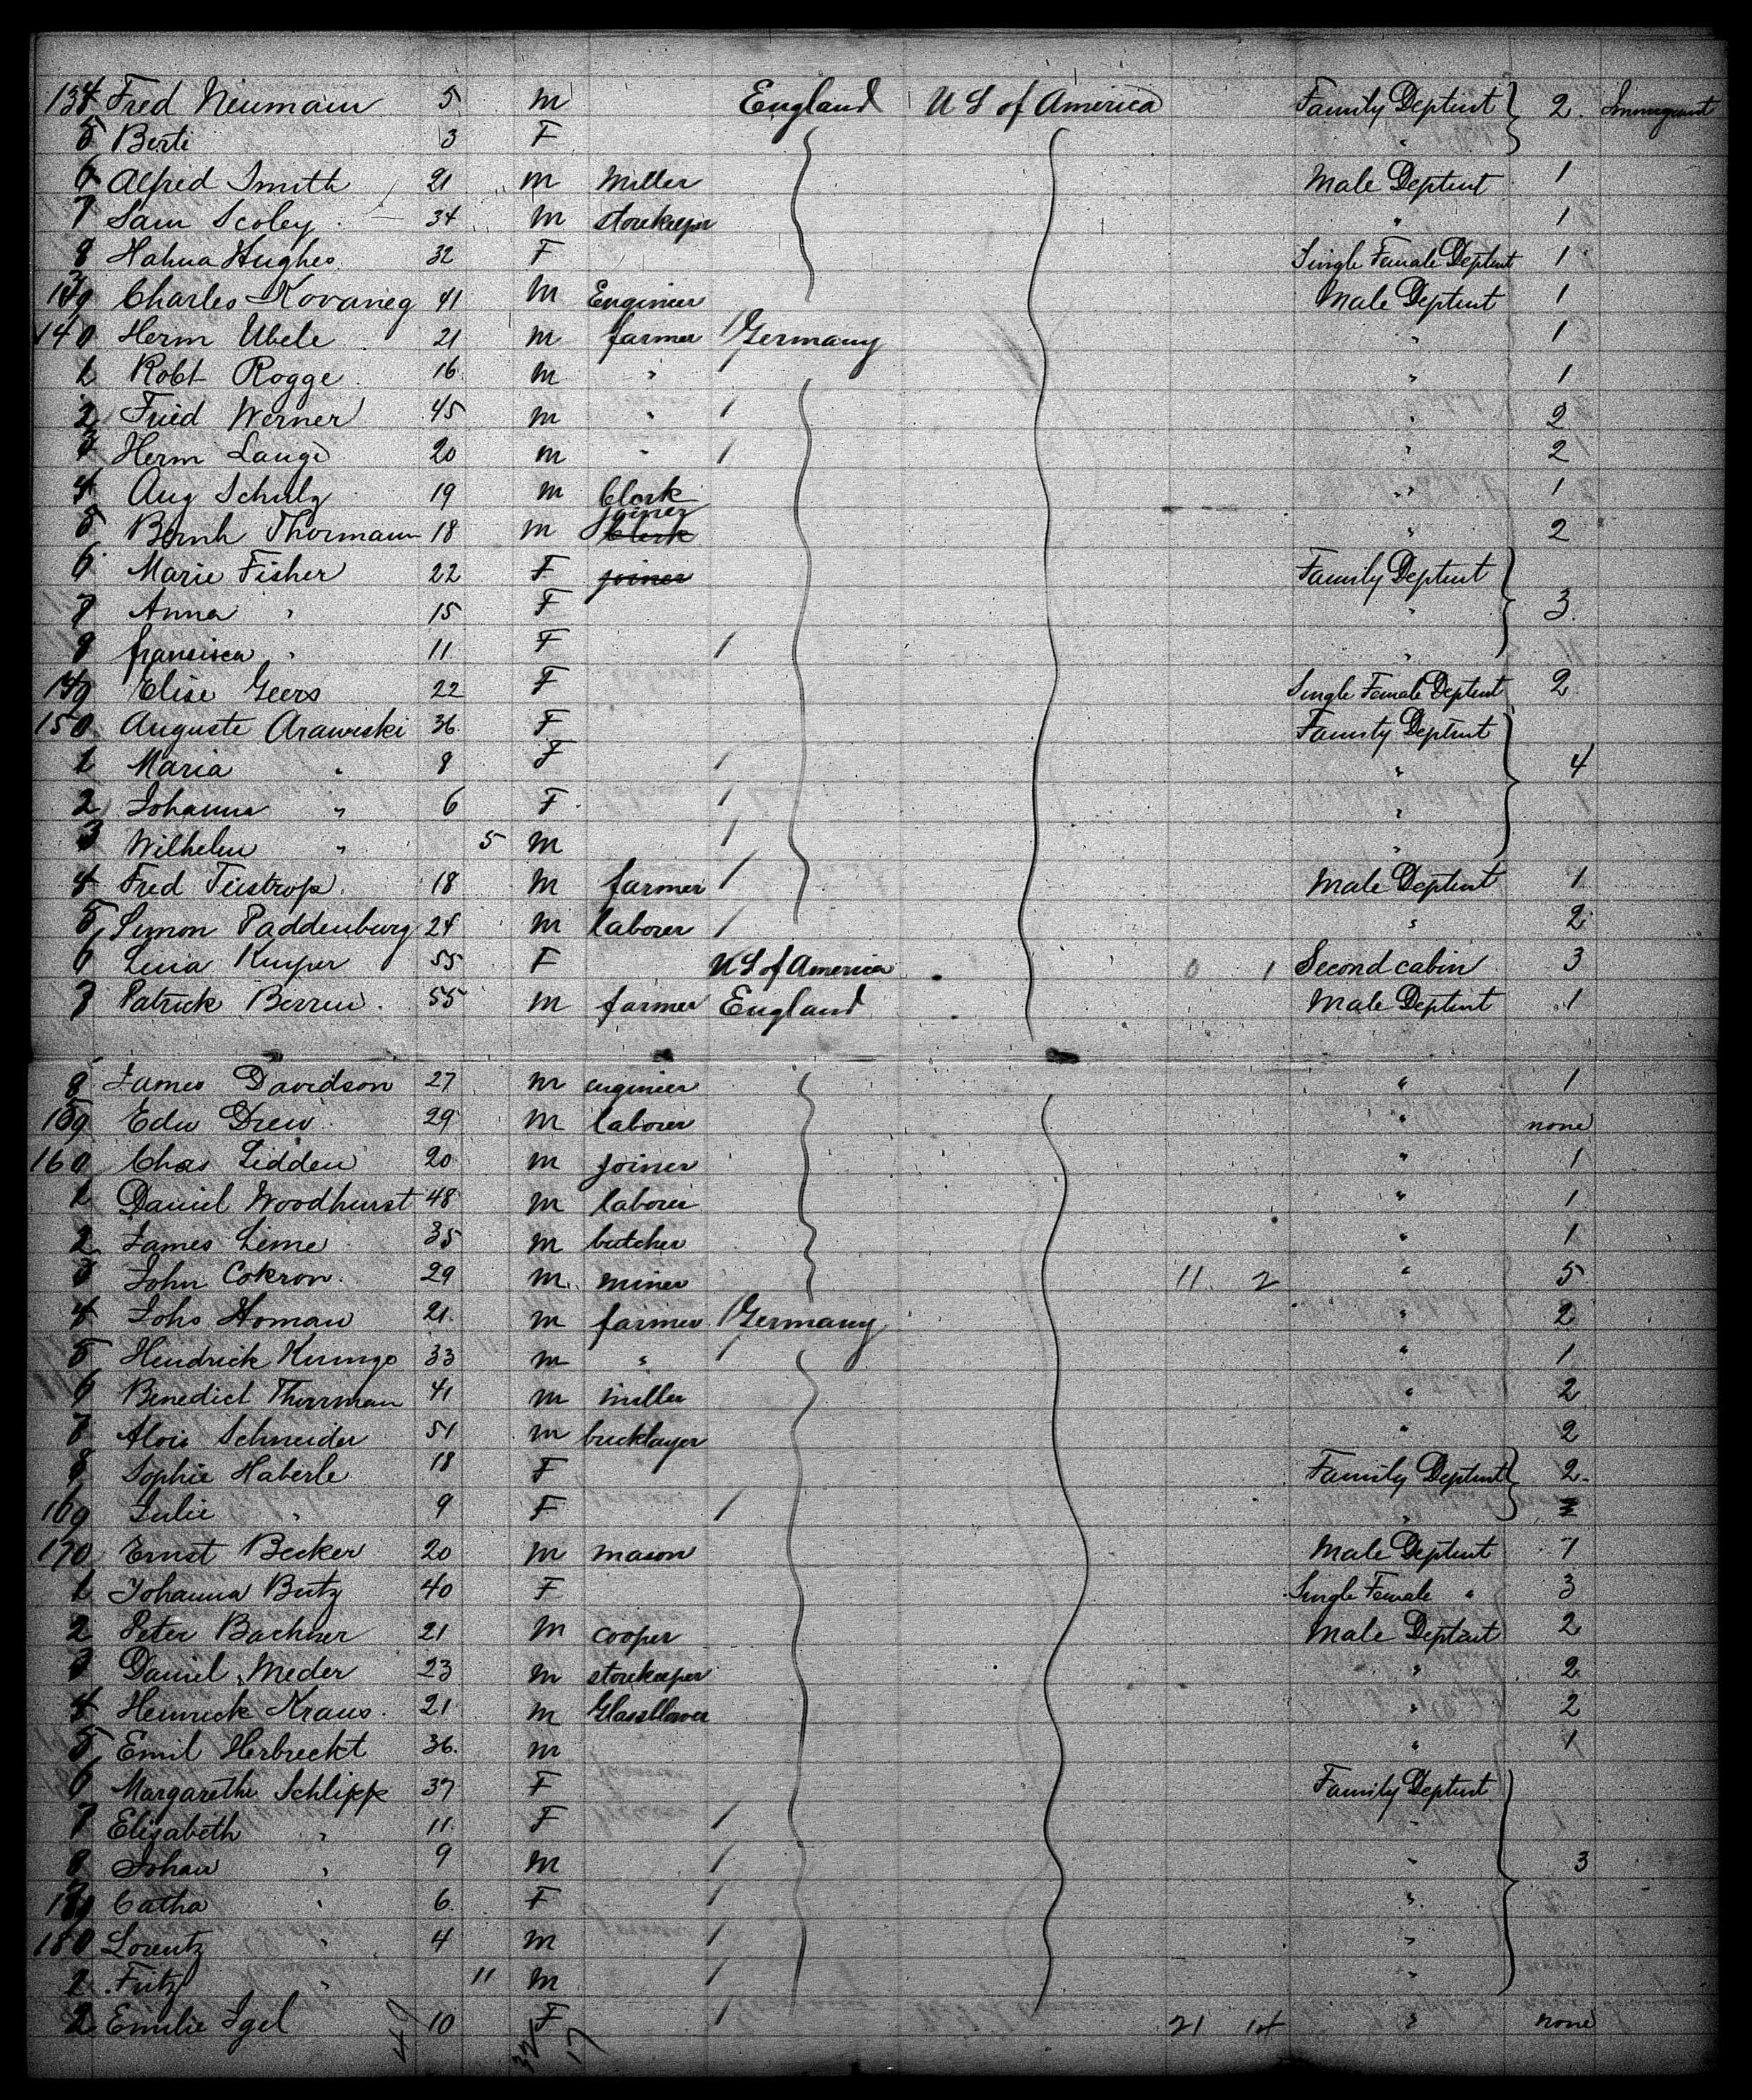 134 Fred Neumann 5 m England U S of America Family Deptmt } 2. Immigrant
5 Berti 3 F "
6 Alfred Smith 21 m Miller Male Deptmt 1
7 Sam Scoley 34 m storekeeper " 1
8 Hahna Hughes 32 F Single Female Deptmt 1
139 Charles Kovaneg 41 m Engineer Male Deptmt 1
140 Herm Ubele 21 m farmer / Germany " 1
1 Robt Rogge 16 m " / " 1
2 Fried Werner 45 m " / " 2
3 Herm Lange 20 m " / " 2
4 Aug Schulz 19 m Clerk " 1
joiner
5 Bernh Thormann 18 m Clerk " 2
6 Marie Fisher 22 F joiner Family Deptmt
7 Anna " 15 F " } 3.
8 francisca " 11 F / "
149 Elise Geers 22 F Single Female Deptmt 2
150 Auguste Arawiski 36 F Family Deptmt
1 Maria " 8 F / " } 4
2 Johanna " 6 F /
3 Wilhelm " 5 m / "
4 Fred Teistrop 18 m farmer / Male Deptmt 1
5 Simon Paddenburg 24 m laborer / " 2
6 Lena Kuyper 55 F U S of America 0 1 Second cabin 3
7 Patrick Berren 55 m farmer England Male Deptmt 1
8 James Davidson 27 m engineer " 1
159 Edw Drew 29 m laborer " none
160 Chas Lidden 20 m joiner " 1
1 Daniel Woodhurst 48 m laborer " 1
2 James Lime 35 m butcher " 1
3 John Cokron 29 m miner 11 2 " 5
4 Johs Homan 21 m farmer / Germany " 2
5 Hendrick Kunngo 33 m " / " 1
6 Benedict Thurman 41 m miller " 2
7 Alois Schneider 51 m bricklayer " 2
8 Sophie Haberle 18 F Family Deptmt } 2
169 Julie " 9 F / "
170 Ernst Becker 20 m mason Male Deptmt 1
1 Johanna Butz 40 F Single Female " 3
2 Peter Bachner 21 m cooper Male Deptmt 2
3 Daniel Meder 23 m storekeeper " 2
4 Heinrick Kraus 21 m Glassblower " 2
5 Emil Herbreckt 36 m " 1
6 Margarethe Schlipp 37 F Family Deptmt
7 Elisabeth " 11 F / "
8 Johan " 9 m / " } 3
179 Catha " 6 F / "
180 Lorentz " 4 m / "
1 Fritz " 11 m / "
2 Emilie Igel 10 F / 21 14 " none
49 32 17